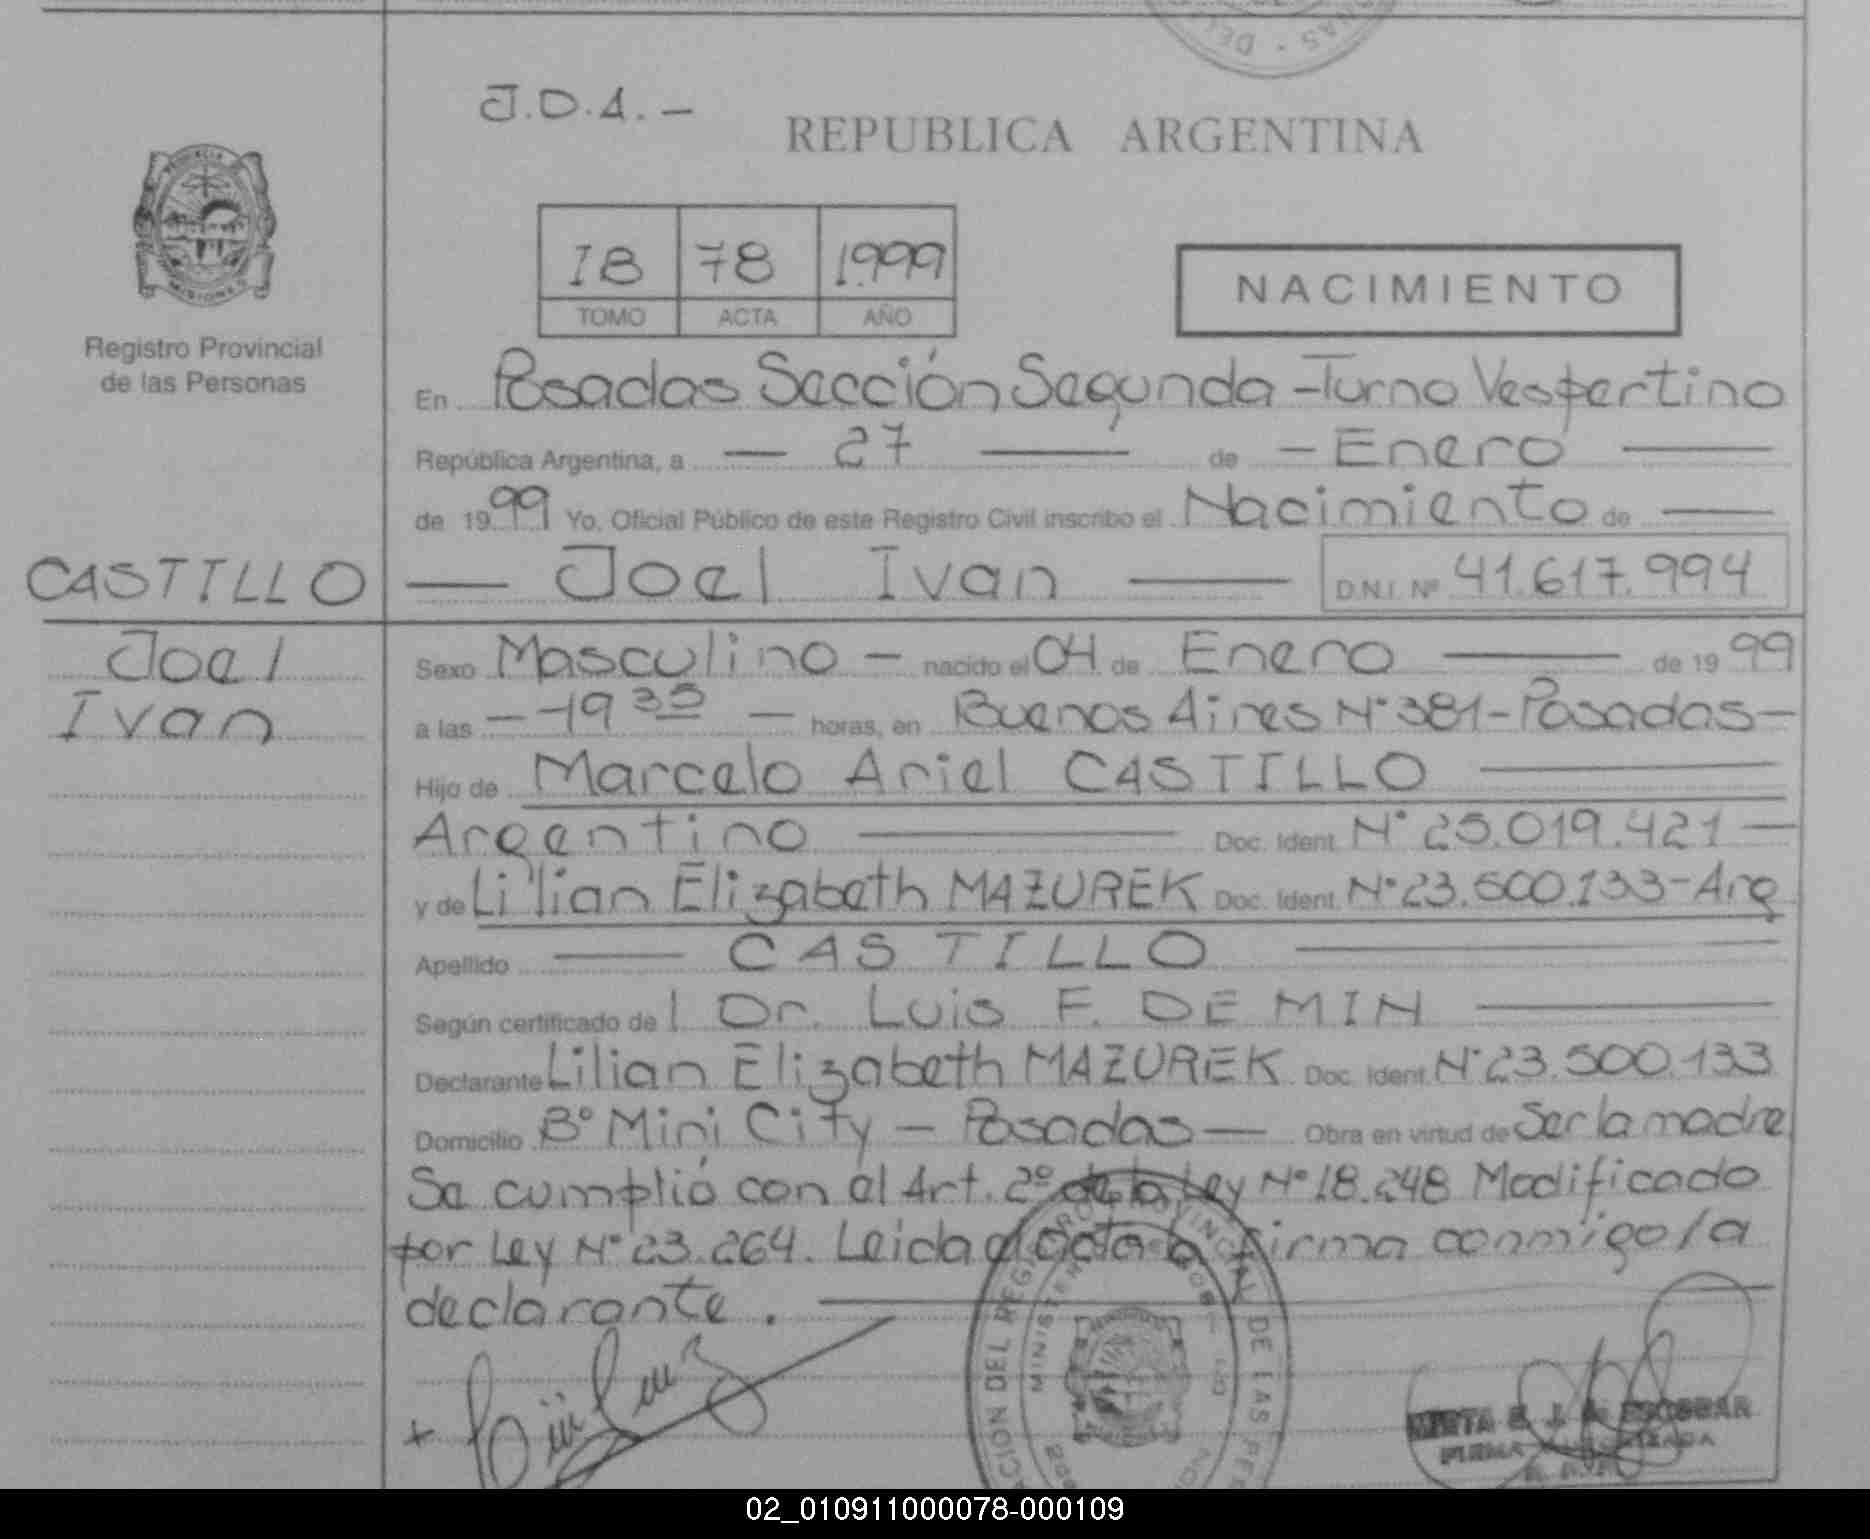 J.D.A.-
REPUBLICA ARGENTINA
PROVINCIA
MISIONES
Registro Provincial
de las Personas
IB 78 1.999
TOMO ACTA AÑO
NACIMIENTO
En Posadas Sección Segunda - Turno Vespertino
República Argentina, a — 27 — de - Enero —
de 1999 Yo, Oficial Público de este Registro Civil inscribo el Nacimiento de —
CASTILLO — Joel Ivan — D.N.I. Nº 41.617.994
Joel
Ivan
Sexo Masculino — nacido el 04 de Enero — de 19 99
a las — 19 35 — horas, en Buenos Aires Nº 381 - Posadas —
Hijo de Marcelo Ariel CASTILLO —
Argentino — Doc. Ident. Nº 25.019.421 —
y de Lilian Elizabeth MAZUREK Doc. Ident. Nº 23.500.133 - Arg
Apellido — CASTILLO —
Según certificado de l Dr. Luis F. DEMIN —
Declarante Lilian Elizabeth MAZUREK Doc. Ident. Nº 23.500.133
Domicilio Bº Mini City — Posadas — Obra en virtud de Ser la madre
Se cumplió con el Art. 2º de la Ley Nº 18.248 Modificado
por Ley Nº 23.264. Leida el acta la firma conmigo la
declarante. —
ESCOBAR
02_010911000078-000109